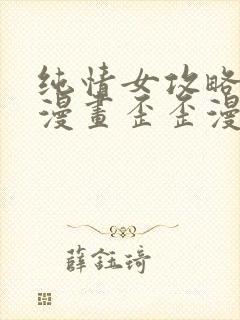 纯情女攻略
漫畫歪歪漫
薛鈺琦